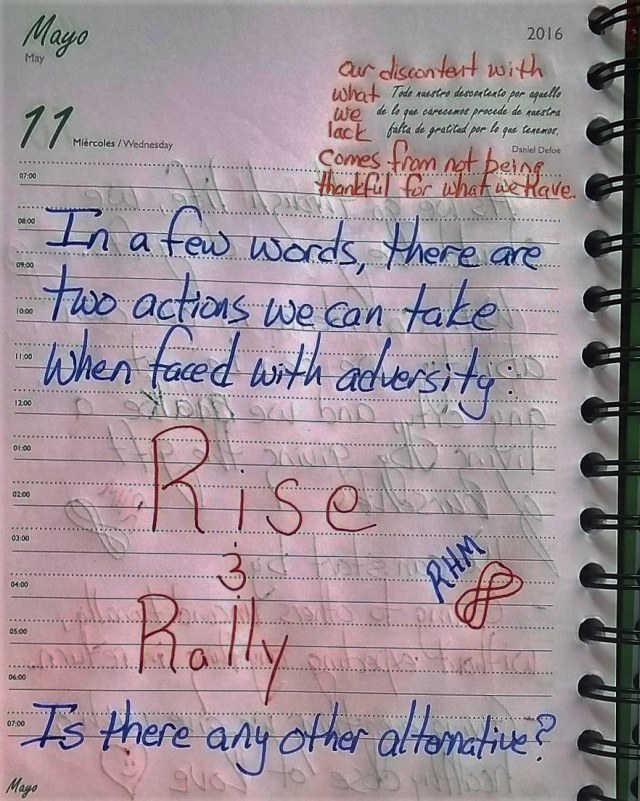 Mayo
May
2016
our discontent with
what
we
lack
Todo nuestro descontento por aquello
de lo que carecemos procede de nuestra
falta de gratitud por lo que tenemos.
Daniel Defoe
comes from not being
thankful for what we Have.
11 Miércoles / Wednesday
07:00
08:00
In a few words, there are
09:00
two actions we can take
10:00
11:00
When faced with adversity:
12:00
01:00
Rise
02:00
03:00
04:00
RHM
Rally
05:00
06:00
07:00
Is there any other alternative?
Mayo